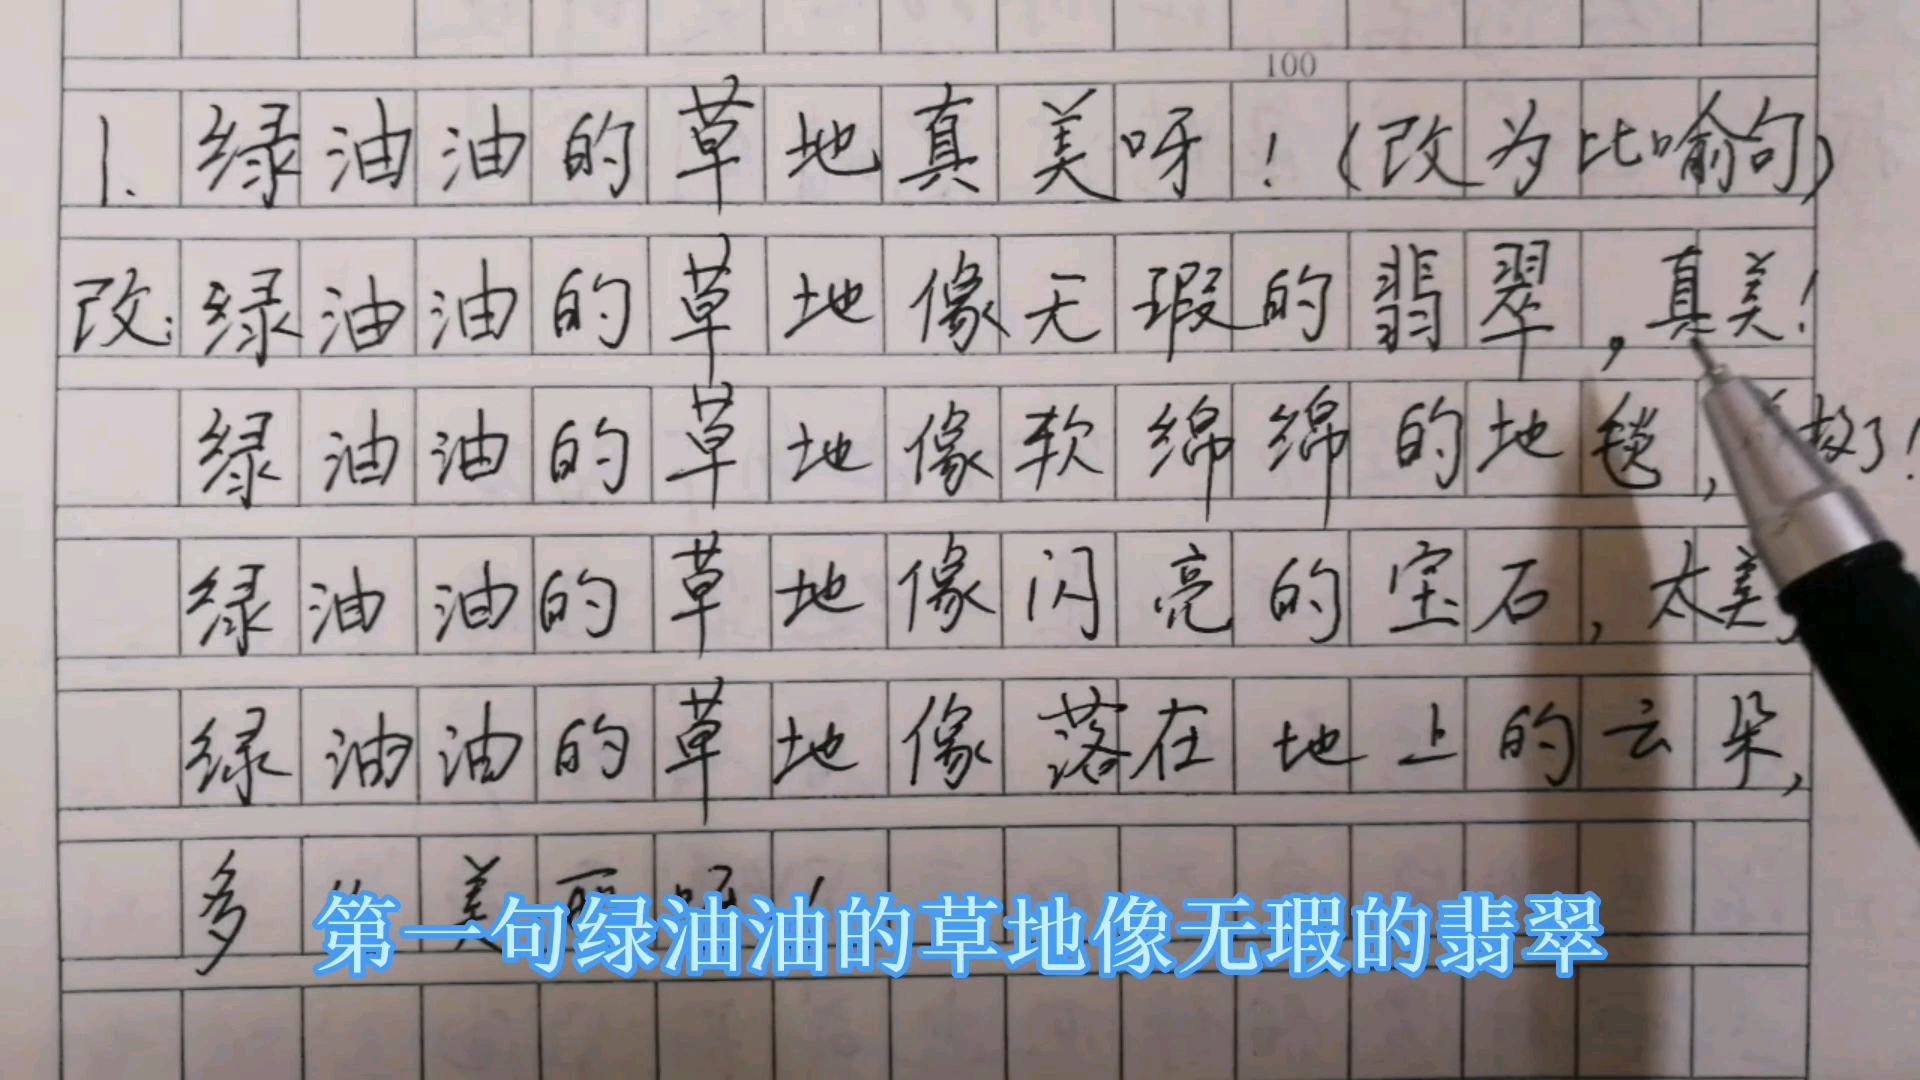 100
1.绿油油的草地真美呀!(改为比喻句)
改:绿油油的草地像无瑕的翡翠,真美!
绿油油的草地像软绵绵的地毯,了!
绿油油的草地像闪亮的宝石,太美
绿油油的草地像落在地上的云朵,
多 美丽呀!
第一句绿油油的草地像无瑕的翡翠